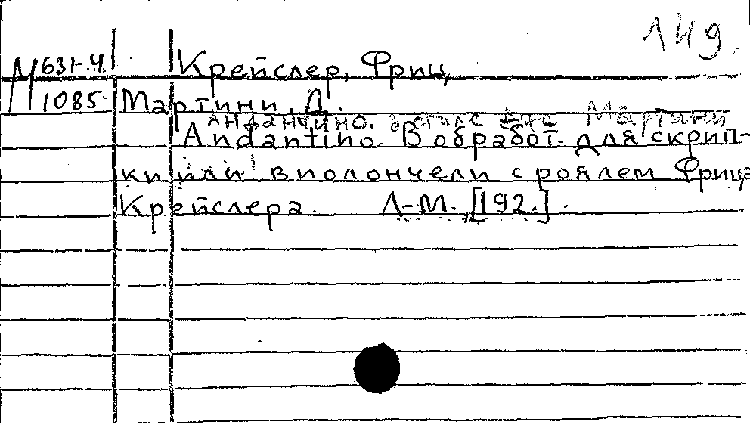 149
М 631.4. Крейслер, Фриц,
1085 Мартини, Д.
Андантино. в стиле Мартини
Andantino. В обработ. для скрип-
ки или виолончели с роялем Фрица
Крейслера. Л-М. [192.].